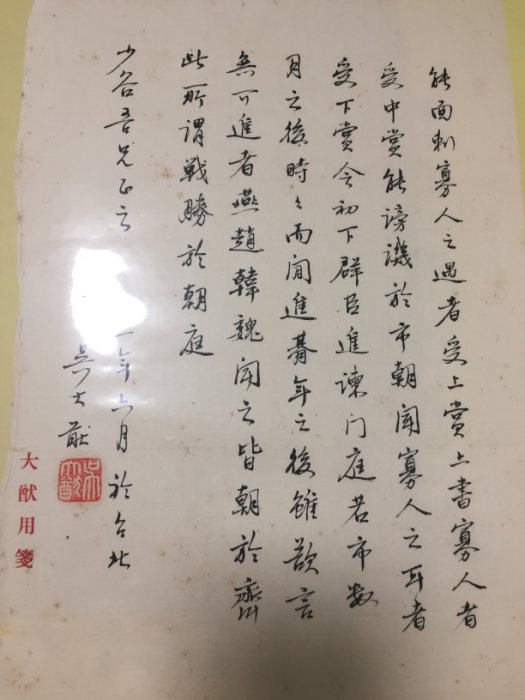 能面刺寡人之過者受上賞上書寡人者
受中賞能謗譏於市朝聞寡人之耳者
受下賞令初下群臣進諫门庭若市数
月之後時々而間進朞年之後雖欲言
無可進者燕趙韓魏闻之皆朝於齊
此所謂戰勝於朝庭
少谷吾兄正之
年六月於台北
吴大猷
大猷用箋